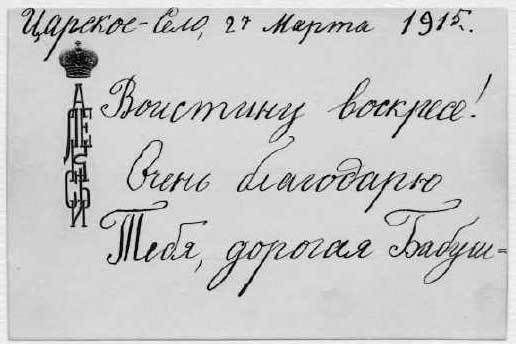 Царское-Село, 27 Марта 1915.
АЛЕКСѢЙ
Воистину воскресе!
Очень благодарю
Тебя, дорогая Бабуш=